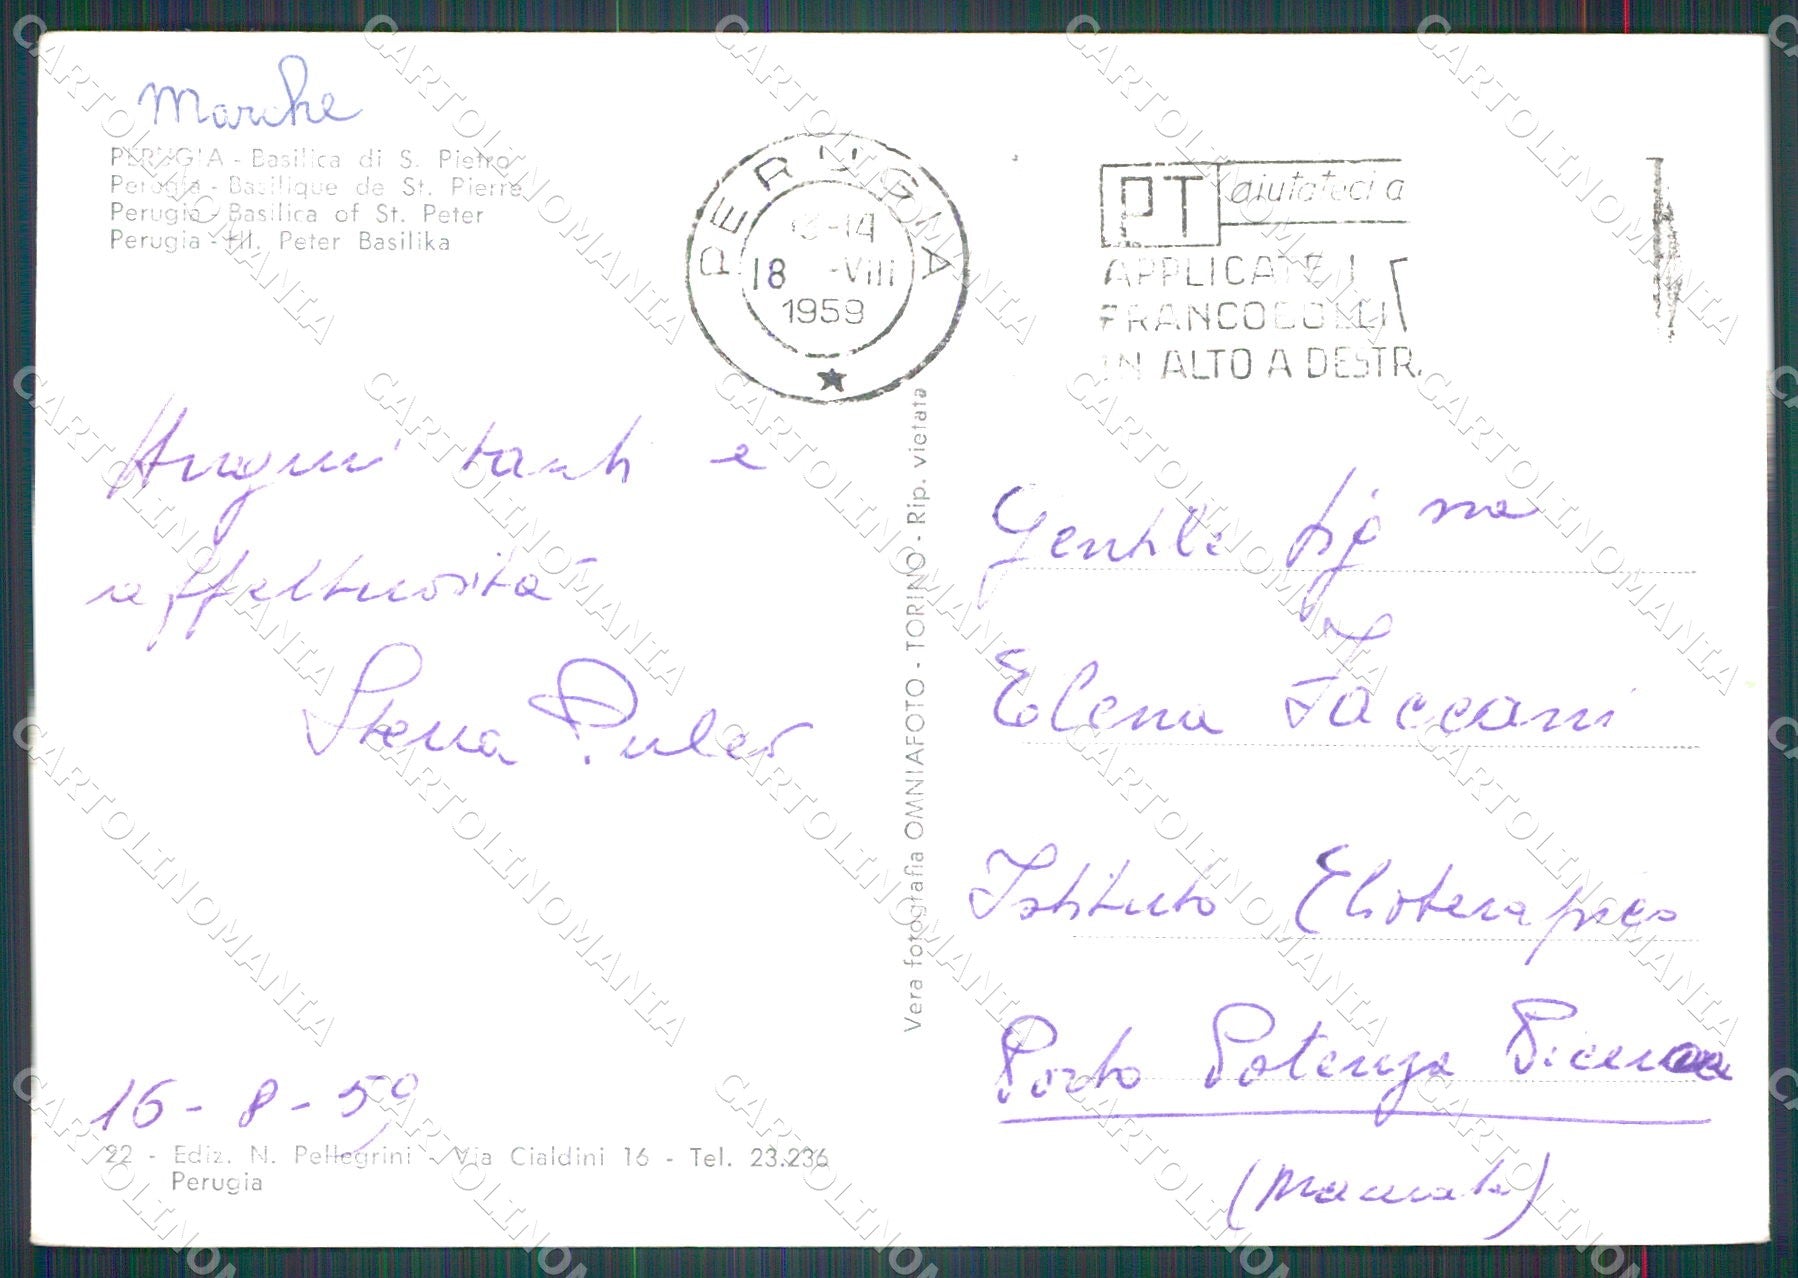 Marche
PERUGIA - Basilica di S. Pietro
Perugia - Basilique de St. Pierre
Perugia - Basilica of St. Peter
Perugia - Hl. Peter Basilika
PERUGIA
13-14
18 -VIII
1959
PT aiutateci a
APPLICATE I
FRANCOBOLLI
IN ALTO A DESTR
Auguri tanti e
affettuosità
16-8-59
22 - Ediz. N. Pellegrini - Via Cialdini 16 - Tel. 23.236
Perugia
Vera fotografia OMNIAFOTO - TORINO - Rip. vietata
Gentile Sig.na
Elena Zaccani
Istituto Elioterapico
Porto Potenza Picena
(Macerata)
CARTOLINOMANIA